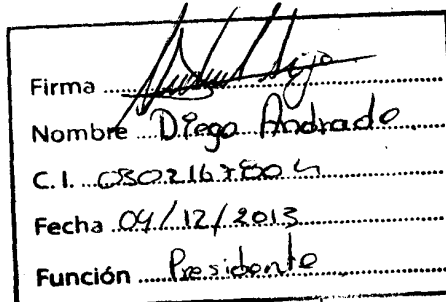 Firma
Nombre Diego Andrade
C.I.
Fecha 04/12/2013
Función Presidente